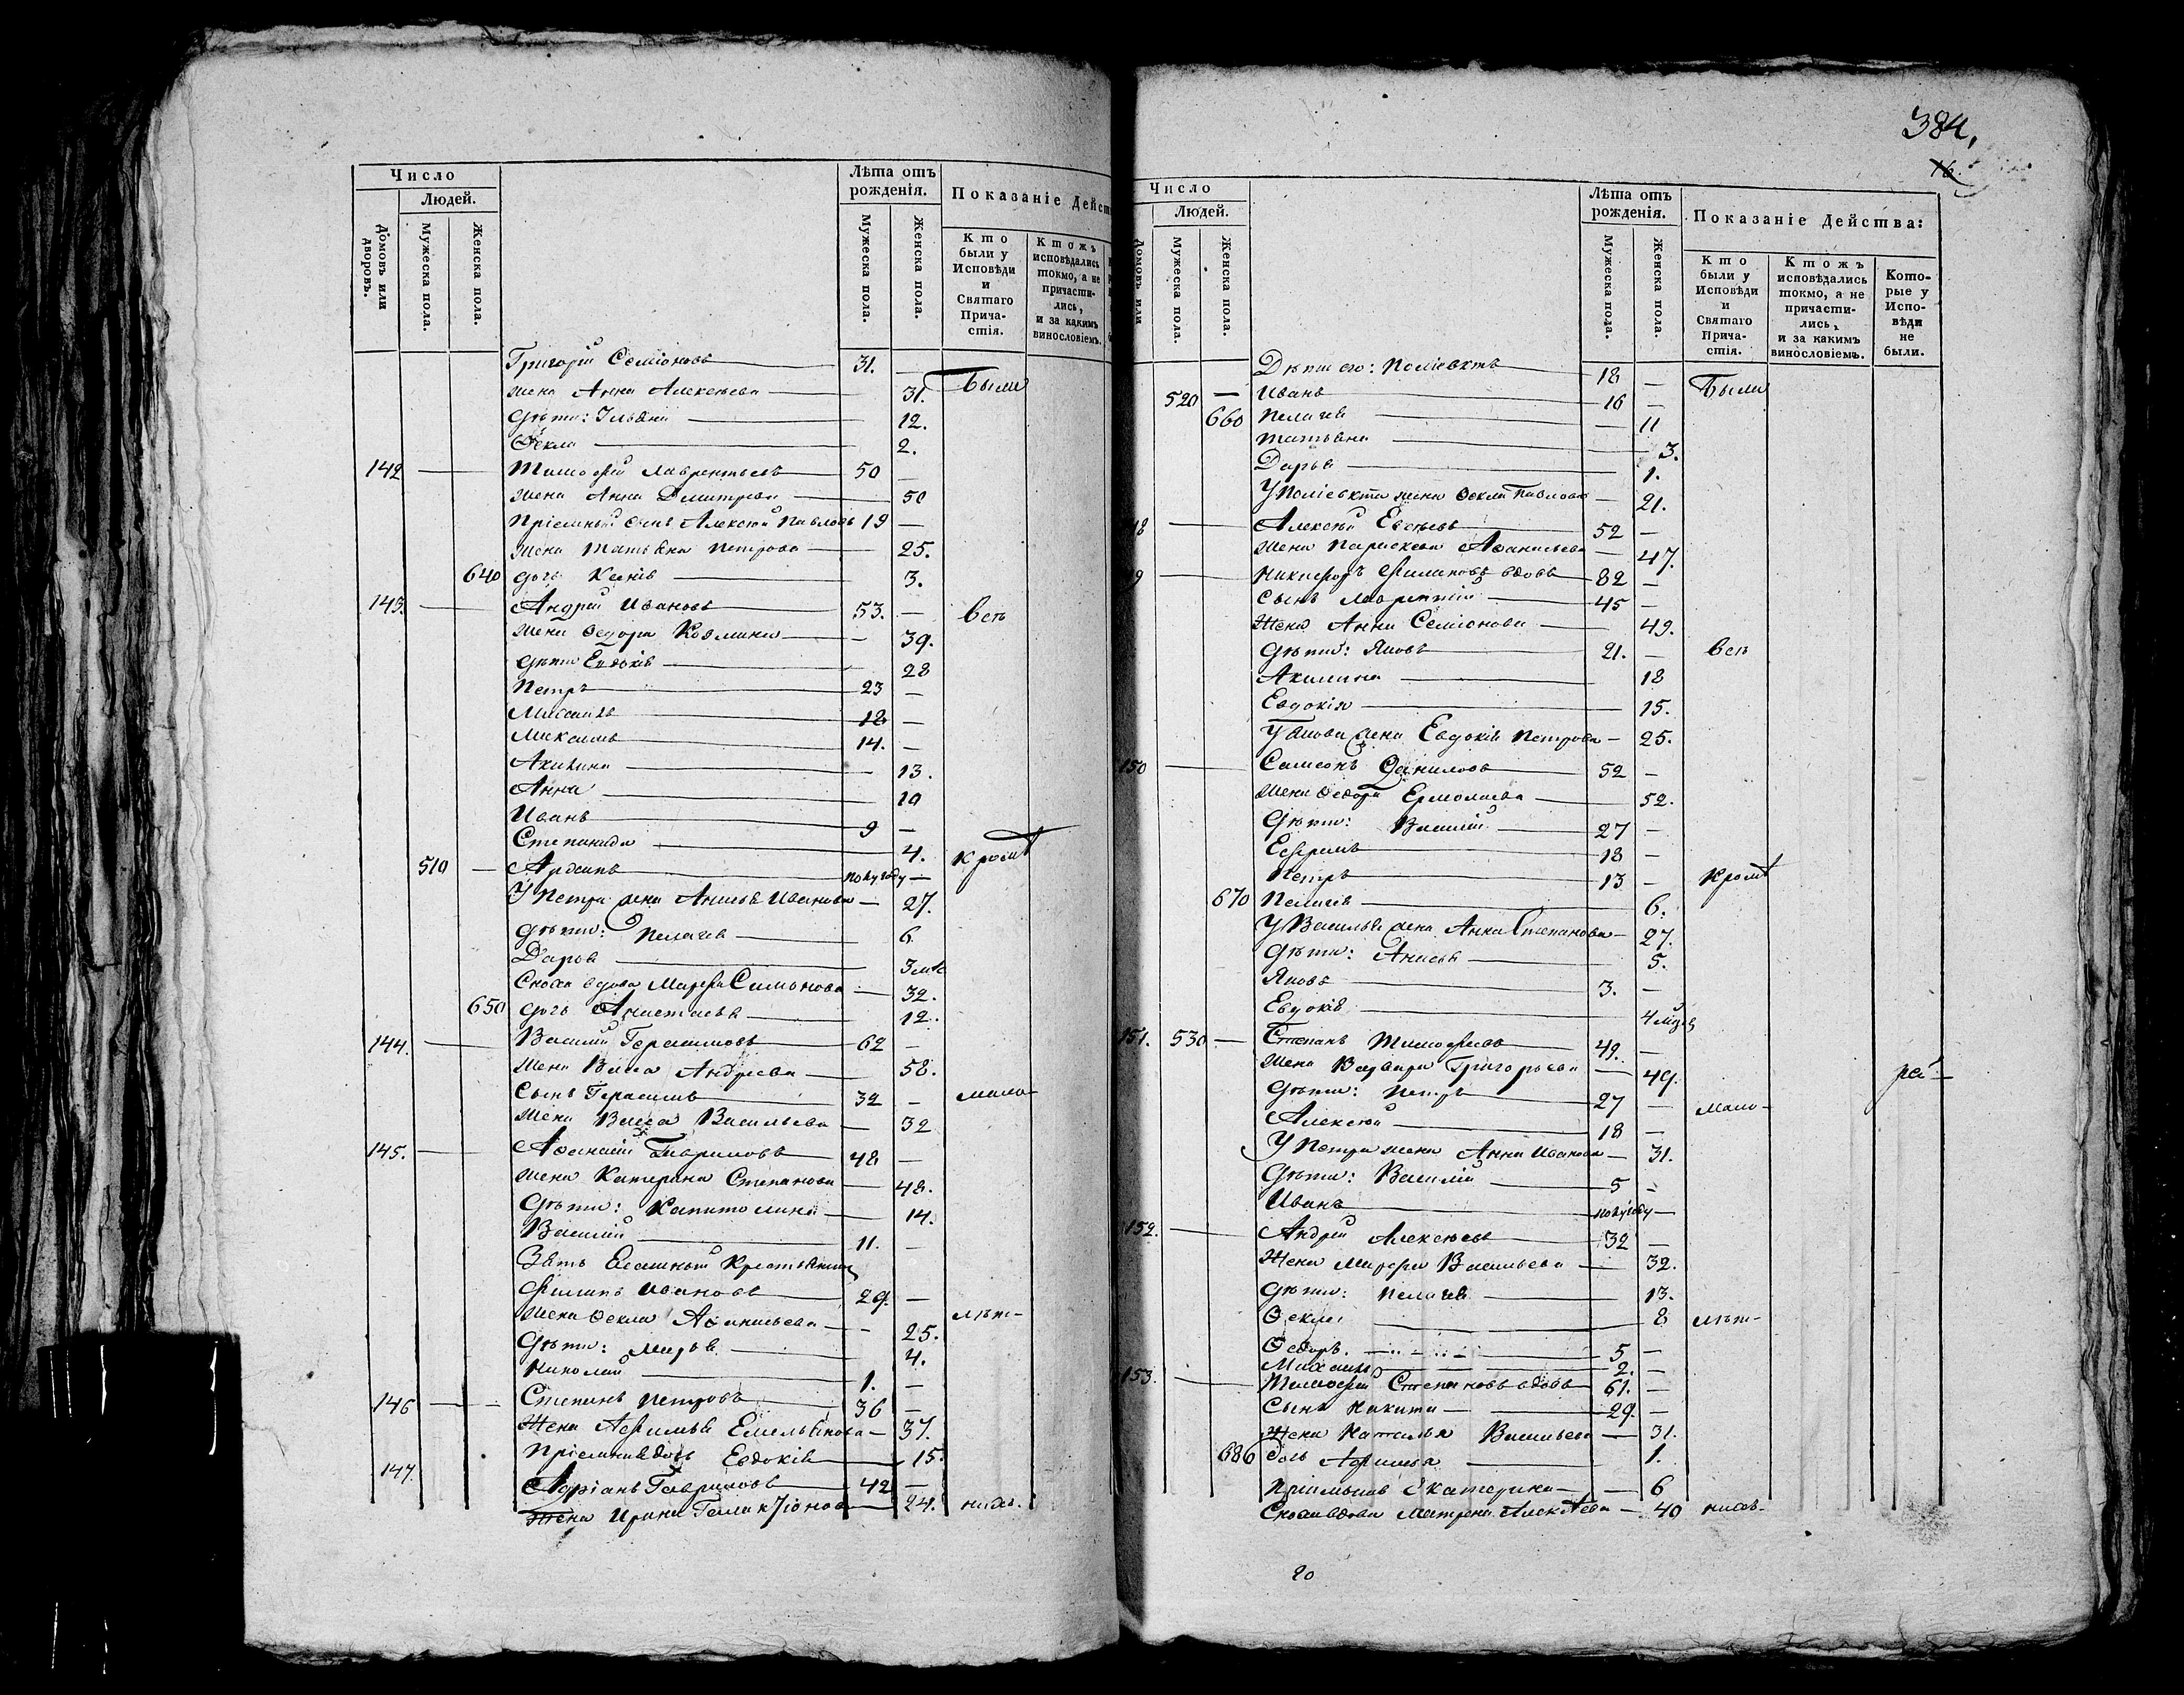 Число
Людей.
Домовъ или дворовъ.
Мужеска пола.
Женска пола.
Лѣта отъ рожденія.
Мужеска пола.
Женска пола.
Показаніе Дейст
Кто были у Исповѣди и Святаго Причастія.
Ктожъ исповѣдались токмо, а не причастились, и за какимъ винословіемъ.
Григорій Семіоновъ 31. —
жена Анна Алексѣева 31. Были
дѣти: 12.
Ѳекла 2.
142 Тимофей Лаврентьевъ 50 —
жена Анна Дмитрева 50
Пріемный сынъ Алексѣй Павловъ 19 —
жена Татьяна Петрова 25.
640 дочь Ксенія 3.
143. Андрей Ивановъ 53. — всѣ
жена Ѳедора Козмина — 39.
дѣти Евдокія 28
Петръ 23 —
Михаилъ 18 —
Максимъ 14. —
Акилина 13.
Анна 10
Иванъ 9 —
Степанида 4. кромѣ
510 — полугоду —
У Петра жена Анисья Иванова — 27.
дѣти: Пелагея 6
Дарья 3 мѣс
Сноха вдова Марфа Симонова — 32.
650 дочь Анастасья 12.
144. Василій Герасимовъ 62 —
жена Васса Андреева 58.
Сынъ Герасимъ 32 — мало-
жена Васса Васильева — 32
145. Аѳанасій Гавриловъ 48 —
жена Катерина Степанова 48.
дѣти: Капитолина 14.
Василій 11. —
Зять Крестьянинъ
Филипъ Ивановъ 29. —
жена Ѳекла Аѳанасьева — 25. лѣт-
дѣти: Марья 4.
Николай 1. —
146 Степанъ Петровъ 36 —
Жена Афимья Емельянова — 37.
Пріемная дочь Евдокія 15.
147. Адріанъ Гавриловъ 42 —
Жена Ирина Галактіонова 24. нихъ.
384.
16.
Число
Людей.
Домовъ или
Мужеска пола.
Женска пола.
Лѣта отъ рожденія.
Мужеска пола.
Женска пола.
Показаніе Действа:
Кто были у Исповѣди и Святаго Причастія.
Ктожъ исповѣдались токмо, а не причастились, и за какимъ винословіемъ.
Которые у Исповѣди не были.
Дѣти его: Поліевктъ 18 — Были
520 — Иванъ 16 —
660 Пелагея — 11
Татьяна 3.
Дарья 1.
У Поліевкта жена Ѳекла Павлова — 21.
48 Алексѣй Евсѣевъ 52 —
жена Параскева Аѳанасьева — 47.
9 Никифоръ Филиповъ вдовъ 82 —
Сынъ Лаврентій 45 —
Жена Анна Семіонова 49.
дѣти: Яковъ 21. — всѣ
Акилина 18
Евдокія 15.
У Якова жена Евдокія Петрова — 25.
150 Самсонъ Даниловъ 52 —
жена Ѳедора Ермолаева 52.
дѣти: Василій 27 —
Ефремъ 18 —
Петръ 13 — кромѣ
670 Пелагея 6.
У Василья жена Анна Степанова — 27.
дѣти: Анисья 5.
Яковъ 3. —
Евдокія 4 мѣся
151. 530 — Степанъ Тимофеевъ 49. —
жена Варвара Григорьева — 49.
дѣти: Петръ 27 — мало-
Алексѣй 18 —
У Петра жена Анна Иванова — 31.
дѣти: Василій 5 —
Иванъ полугоду —
152. Андрей Алексѣевъ 32 —
Жена Марфа Васильева — 32.
дѣти: Пелагея 13.
Ѳекла 8 лѣт-
Ѳедоръ. 5 —
Михаилъ 2. —
153. Тимофей Степановъ вдовъ 61. —
Сынъ Никита 29. —
Жена Наталья Васильева — 31.
686 дочь Афимья 1.
Пріемышъ Екатерина — 6
Сноха вдова Матрена Алексѣева — 40 нихъ-
20